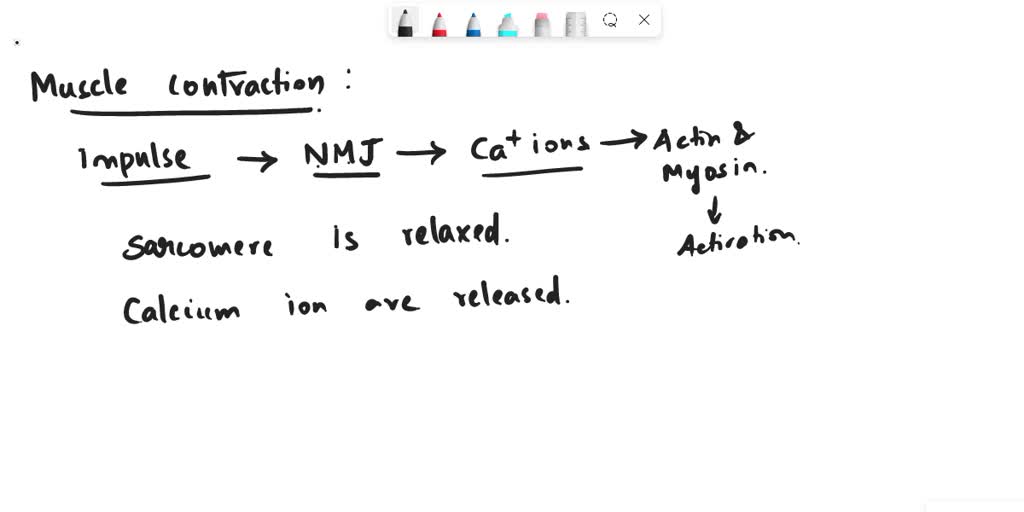 Muscle Contraction :
Impulse → NMJ → Ca⁺ ions → Actin &
Myosin.
↓
Activation.
Sarcomere is relaxed.
Calcium ion are released.